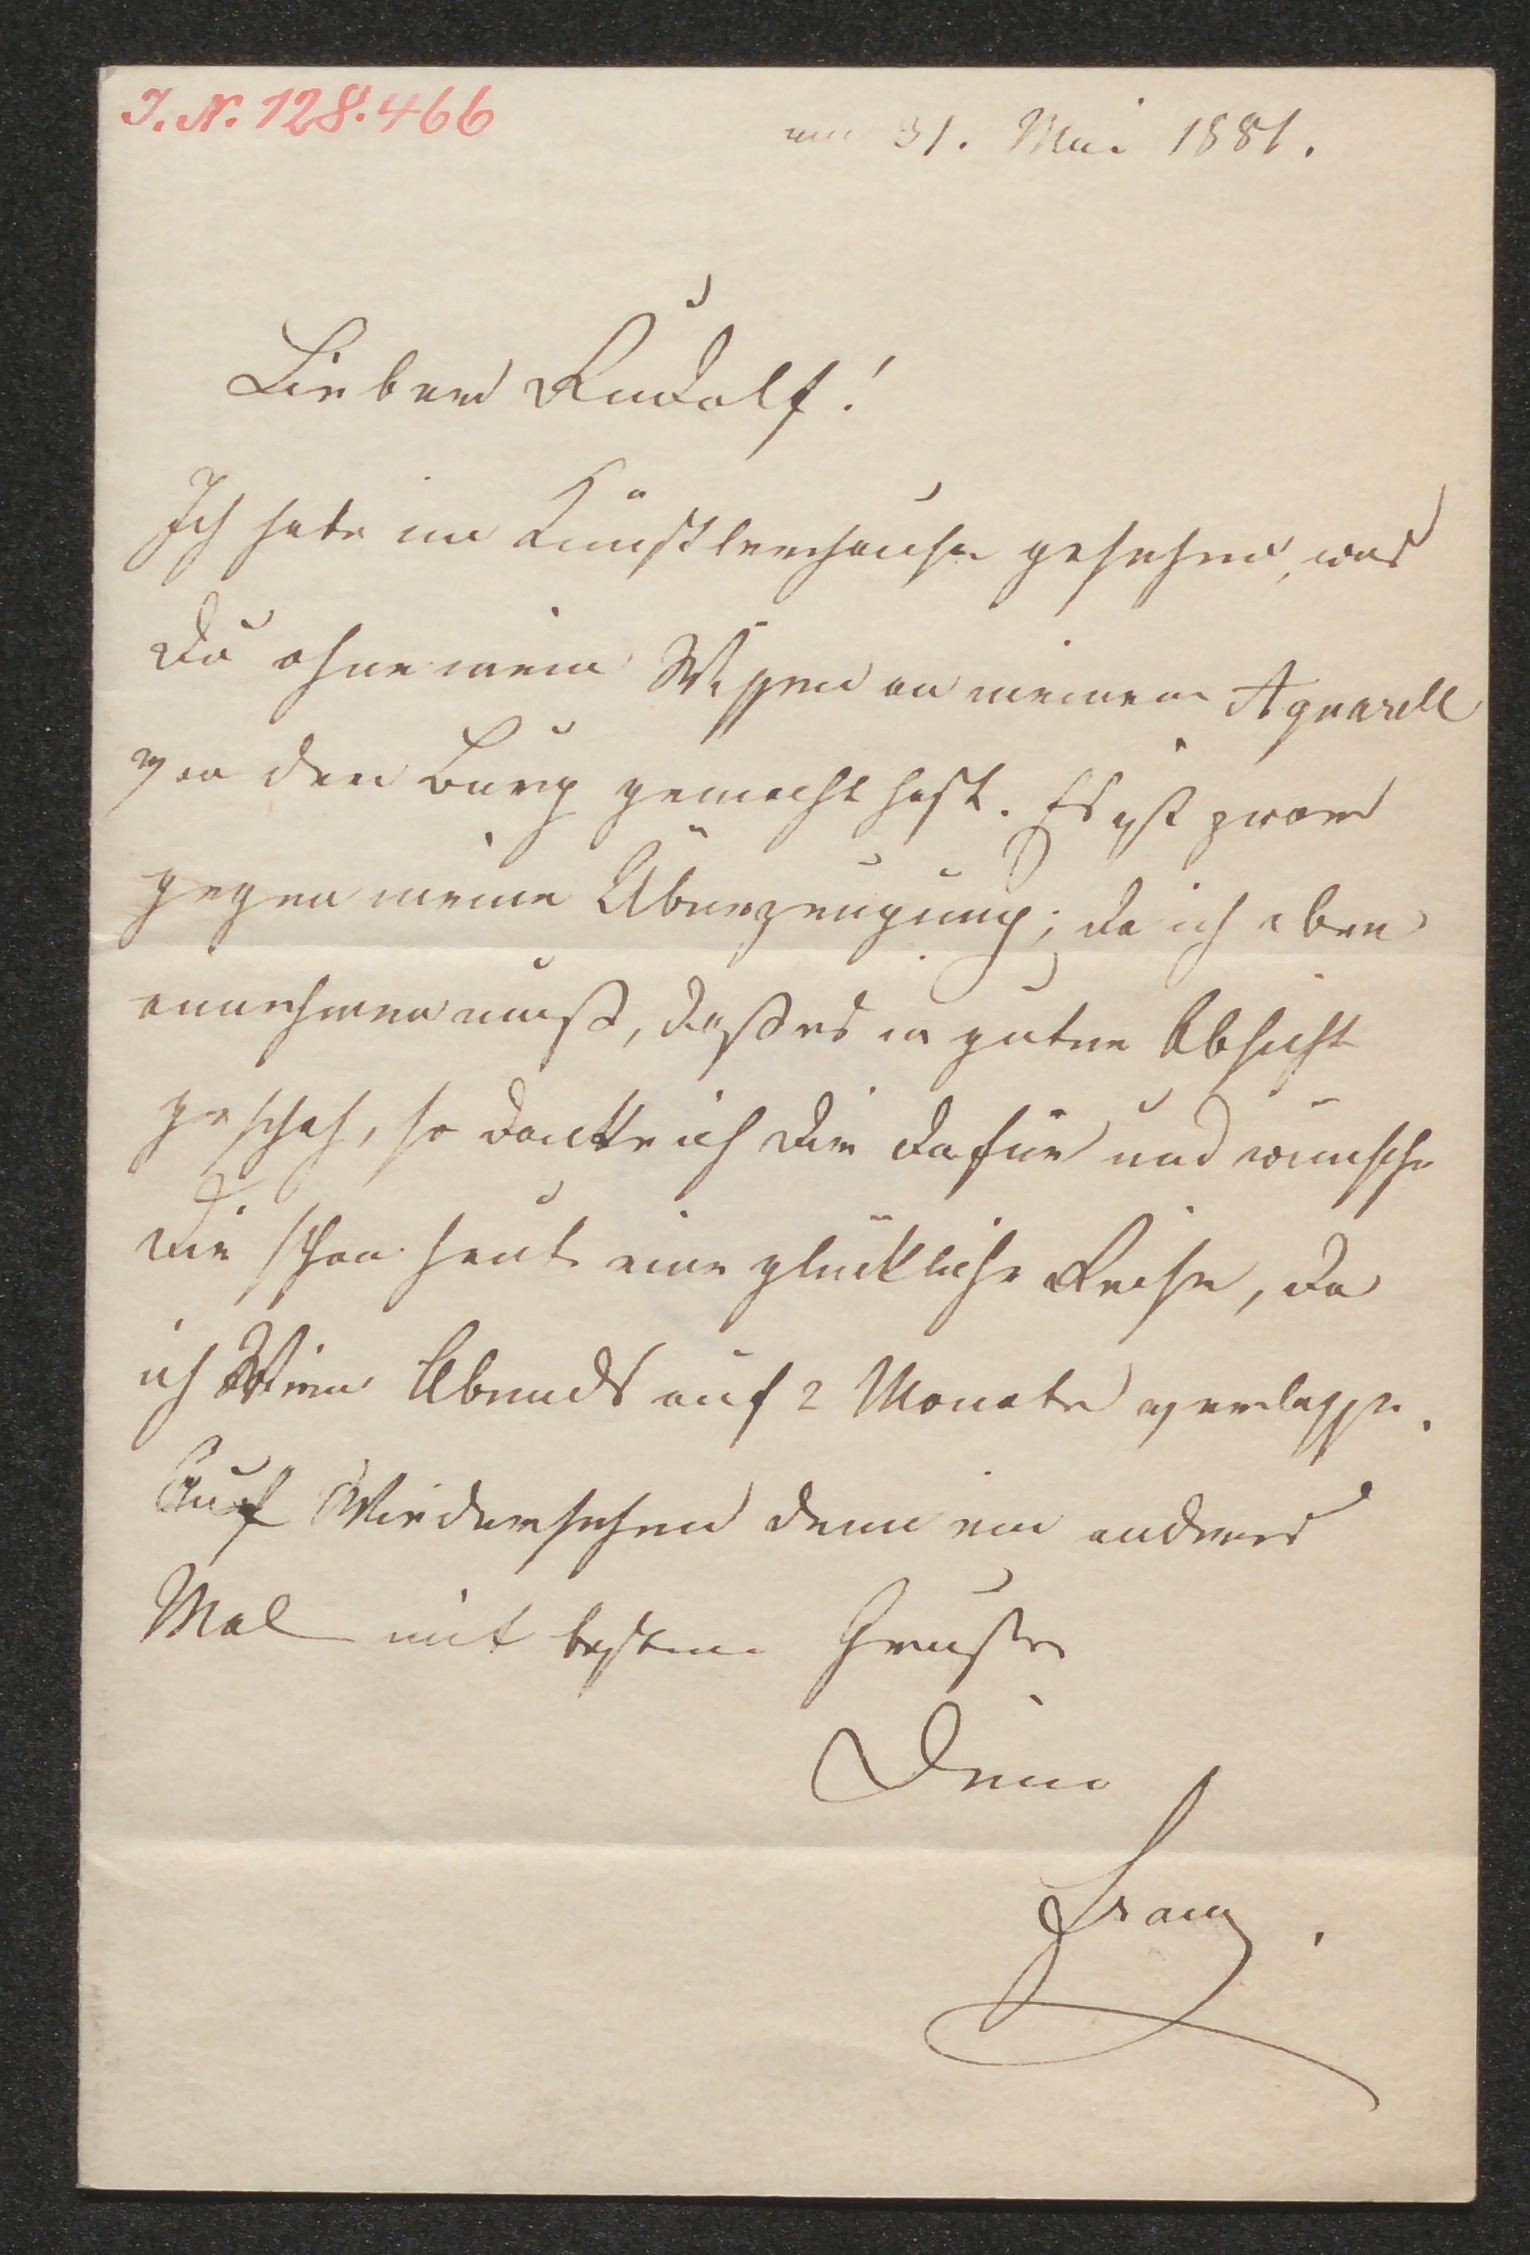 I. N. 128.466
am 31. Mai 1881.
Lieber Rudolf!
Ich habe im Künstlerhause gesehen, was
Du ohne mein Wissen an meinem Aquarell
von der Burg gemacht hast. Es ist zwar
gegen meine Überzeugung; da ich aber
annehmen muß, daß es in guter Absicht
geschah, so danke ich Dir dafür und wünsche
Dir schon heute eine glückliche Reise, da
ich Wien Abends auf 2 Monate verlasse.
Auf Wiedersehen denn ein anderes
Mal mit bestem Gruße
Dein
Franz.